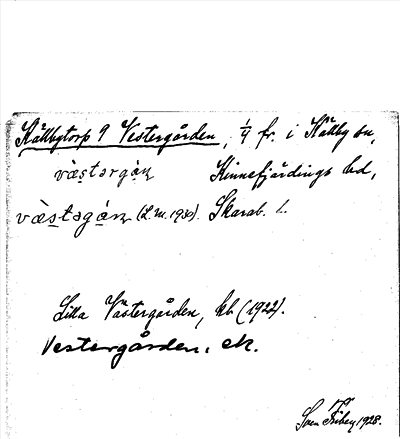 Källbytorp 9 Vestergården, 1/4 fr. i Källby sn,
væ̀stərgán Kinnefjärdings hd,
væ̀stəgán (L.M. 1930). Skarab. l.
Lilla Västergården, kb (1922).
Vestergården, ek.
Sven Friberg 1928.